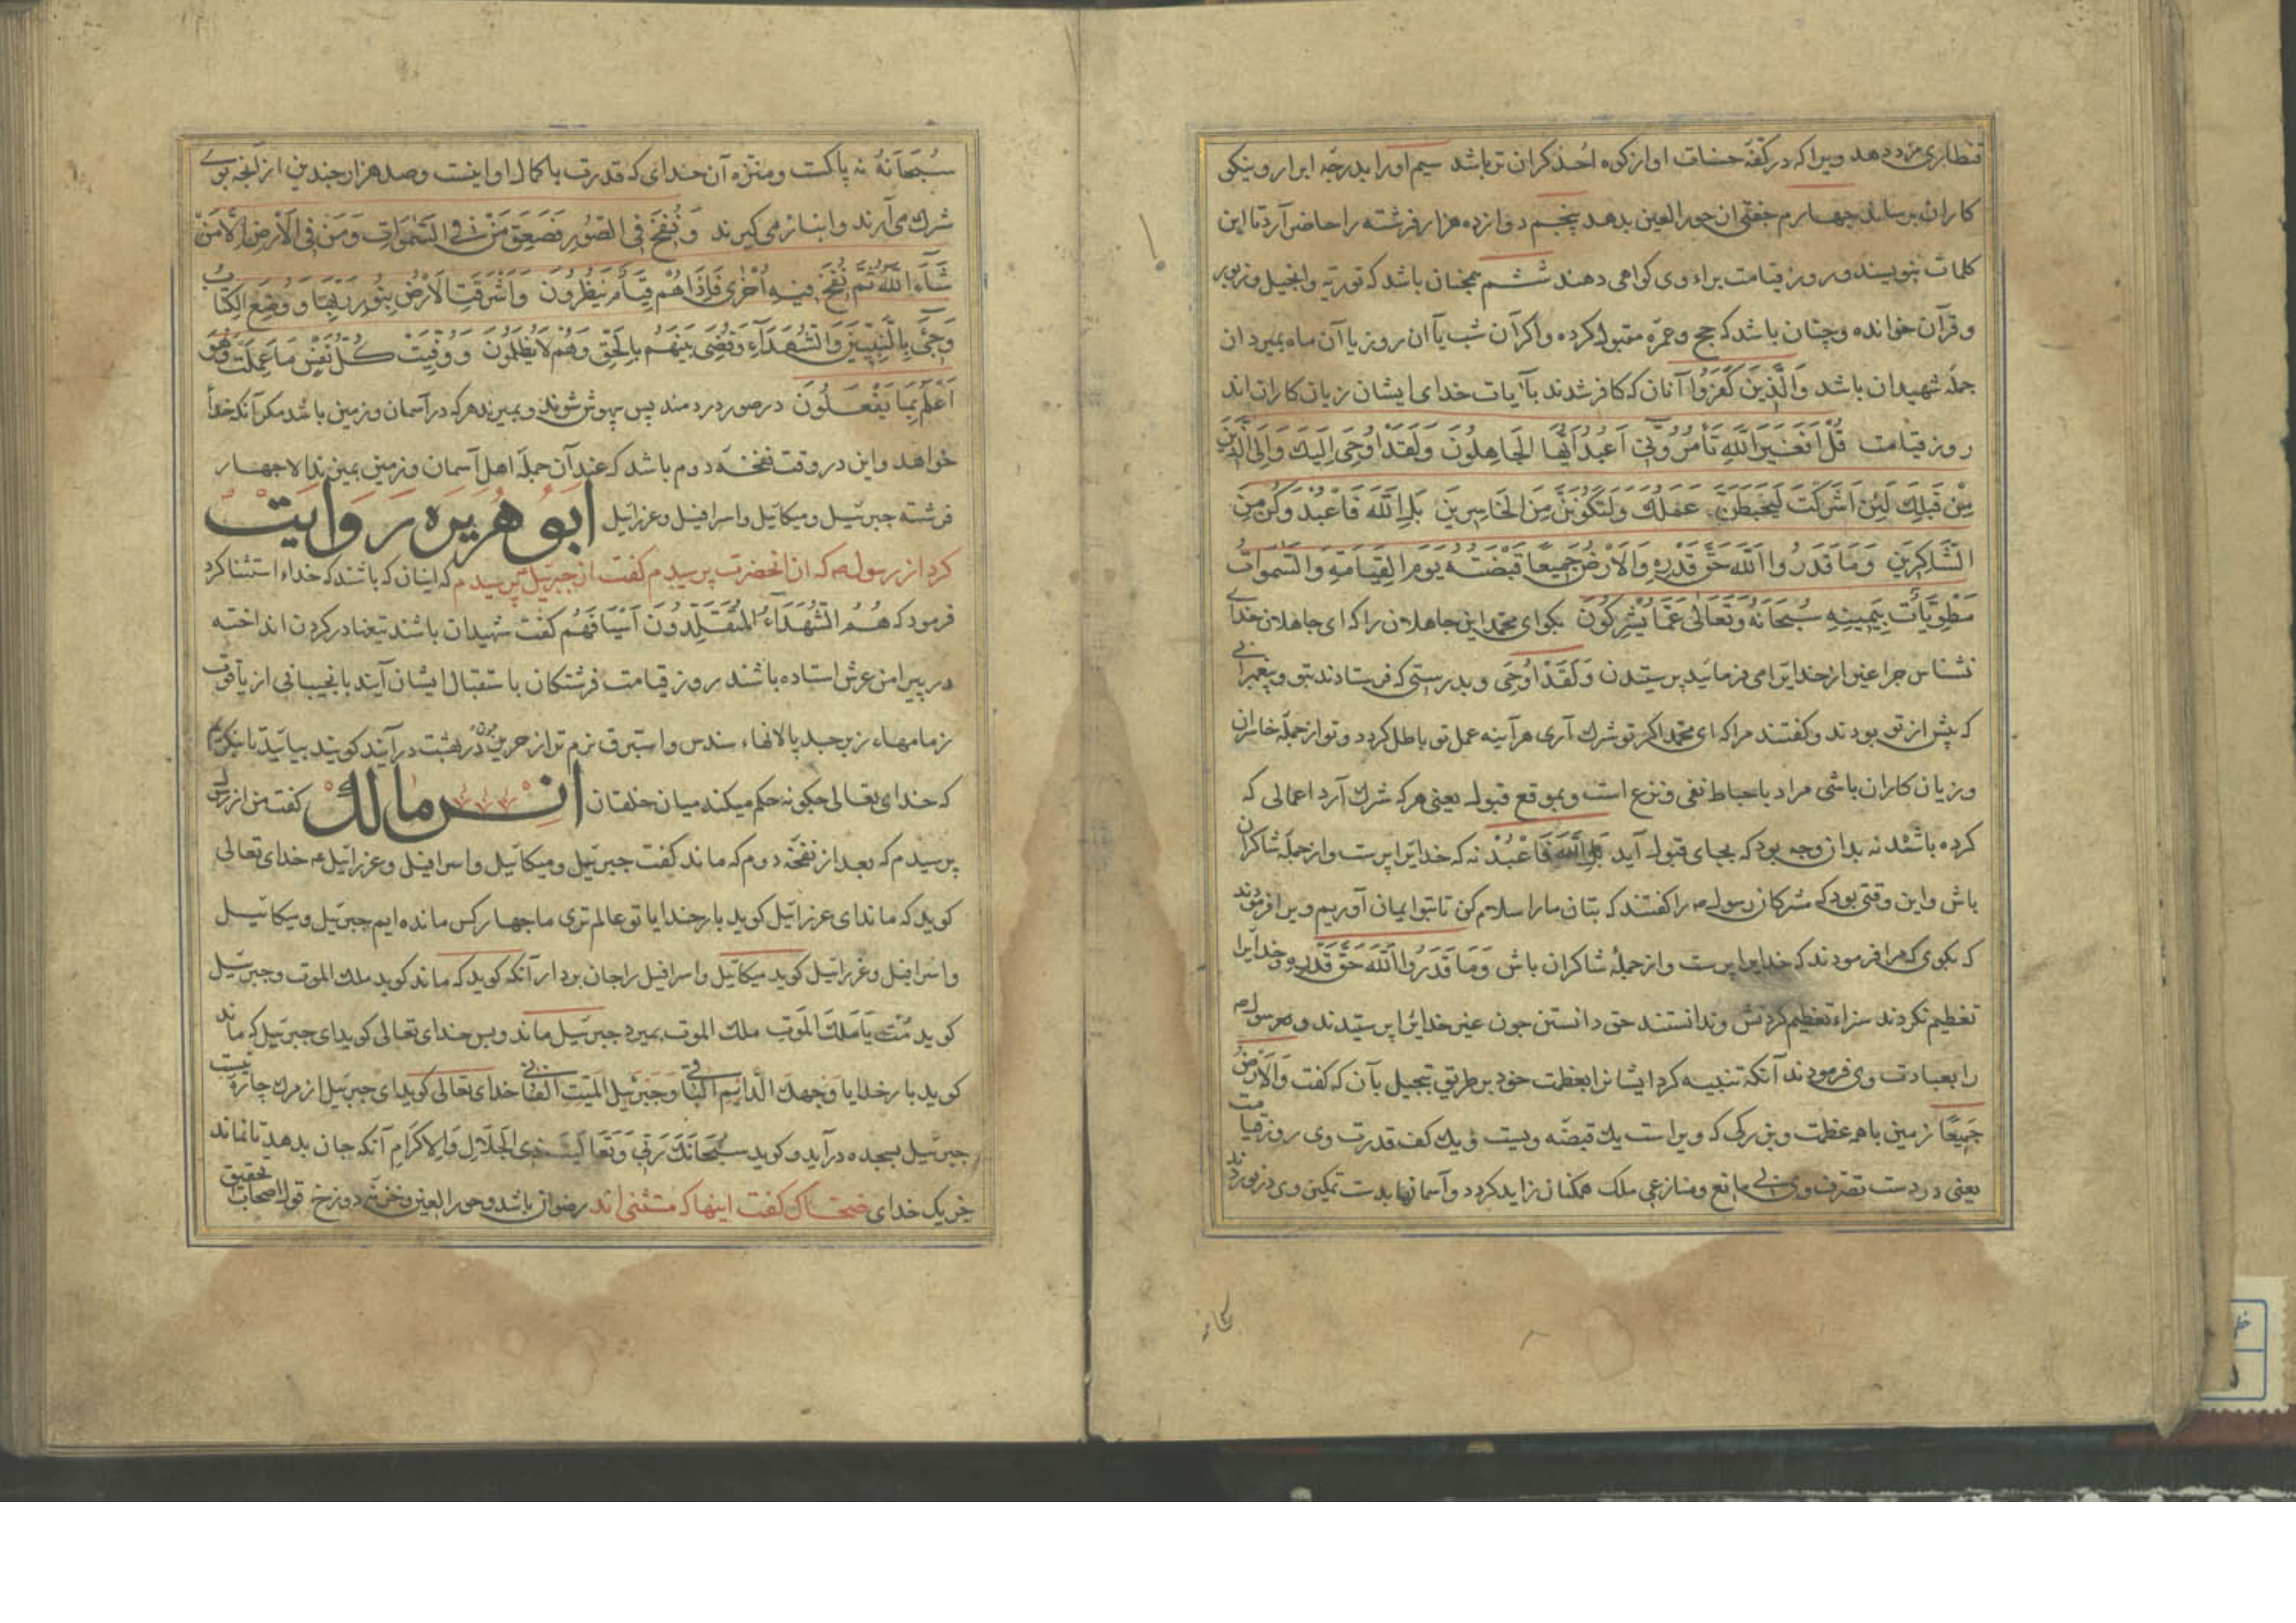 قنطاری مزد دهد ویرا که در کفهٔ حسنات او از کوه احد کران تر باشد سیم او را بدرجهٔ ابرار و نیکو
کاران برساند چهارم جفتی از حور العین بدهد پنجم دوازده هزار فرشته را حاضر آرد تا این
کلمات بنویسند و روز قیامت براء وی کواهی دهند ششم همچنان باشد که توریة و انجیل و زبور
و قرآن خوانده و چنان باشد که حج و عمره مقبول کرده و اکر آن شب یا آن روز یا آن ماه بمیرد از
جمله شهیدان باشد وَالَّذِینَ کَفَرُوا آنان که کافر شدند بآیات خدای ایشان زیان کاران اند
روز قیامت قُلْ اَفَغَیْرَ اللّهِ تَأْمُرُوۤنّی اَعْبُدُ اَیُّهَا الْجَاهِلُونَ وَلَقَدْ اُوحِیَ اِلَیْكَ وَاِلَی الَّذِینَ
مِنْ قَبْلِكَ لَئِنْ اَشْرَکْتَ لَیَحْبَطَنَّ عَمَلُكَ وَلَتَکُونَنَّ مِنَ الْخَاسِرِینَ بَلِ اللّهَ فَاعْبُدْ وَکُنْ مِنَ
الشَّاکِرِینَ وَمَا قَدَرُوا اللّهَ حَقَّ قَدْرِهِ وَالْاَرْضُ جَمِیعًا قَبْضَتُهُ یَوْمَ الْقِیَامَةِ وَالسَّمٰوَاتُ
مَطْوِیَّاتٌ بِیَمِینِهِ سُبْحَانَهُ وَتَعَالٰی عَمَّا یُشْرِکُونَ بکو ای محمد این جاهلان را که ای جاهلان خدای
نشناس چرا غیر از خدایرا می فرمائید پرستیدن وَلَقَدْ اُوحِیَ و بدرستی که فرستادند بتو و پیغمبرانی
که پیش از تو بودند و کفتند مرا که ای محمد اکر تو شرك آری هرآینه عمل تو باطل کردد و تو از جملهٔ خاسران
و زیان کاران باشی مراد باحباط نفی و نزع است و بموقع قبول یعنی هر که شرك آرد اعمالی که
کرده باشد نه بدان وجه بود که بجای قبول آید بَلِ اللّهَ فَاعْبُدْ نه که خدایرا پرست و از جملهٔ شاکران
باش و این وقتی بود که مشرکان رسول را کفتند که بتان ما را سلام کن تا بتو ایمان آوریم ویرا فرمودند
که بکوی که مرا فرمودند که خدایرا پرست و از جملهٔ شاکران باش وَمَا قَدَرُوا اللّهَ حَقَّ قَدْرِهِ و خدایرا
تعظیم نکردند سزاء تعظیم کردنش و ندانستند حق دانستن چون غیر خدایرا پرستیدند و مر رسول
را بعبادت وی فرمودند آنکه تنبیه کرد ایشانرا بعظمت خود بر طریق تبجیل بآن که کفت وَالْاَرْضُ
جَمِیعًا زمین با همه عظمت و بزرکی که ویراست یك قبضه ویست و یك کف قدرت وی روز قیامت
یعنی در دست تصرف وی بی مانع و منازعی ملك همکنان زاید کردد و آسمانها بدست تمکین وی در نوردند
سُبْحَانَهُ نه پاکست و منزه آن خدای که قدرت با کمال او اینست و صد هزار چندین از آنچه بوی
شرك می آرند و انباز می کیرند وَنُفِخَ فِی الصُّورِ فَصَعِقَ مَنْ فِی السَّمٰوَاتِ وَمَنْ فِی الْاَرْضِ اِلَّا مَنْ
شَآءَ اللّهُ ثُمَّ نُفِخَ فِیهِ اُخْرٰی فَاِذَا هُمْ قِیَامٌ یَنْظُرُونَ وَاَشْرَقَتِ الْاَرْضُ بِنُورِ رَبِّهَا وَوُضِعَ الْکِتَابُ
وَجِیۤءَ بِالنَّبِیِّینَ وَالشُّهَدَآءِ وَقُضِیَ بَیْنَهُمْ بِالْحَقِّ وَهُمْ لَا یُظْلَمُونَ وَوُفِّیَتْ کُلُّ نَفْسٍ مَا عَمِلَتْ وَهُوَ
اَعْلَمُ بِمَا یَفْعَلُونَ در صور در دمند پس بیهوش شوند و بمیرند هر که در آسمان و زمین باشد مکر آنکه خدا
خواهد و این در وقت نفخهٔ دوم باشد که عند آن جمله اهل آسمان و زمین بمیرند الا چهار
فرشته جبرئیل و میکائیل و اسرافیل و عزرائیل اَبُو هُرَیرَه رَوَایَتْ
کرد از رسول که از آنحضرت پرسیدم کفت از جبرئیل پرسیدم که اینان که باشند که خداء استثنا کرد
فرمود که هُمُ الشُّهَدَآءُ الْمُتَقَلِّدُونَ اَسْیَافَهُمْ کفت شهیدان باشند تیغها در کردن انداخته
در پیرامن عرش استاده باشند روز قیامت فرشتکان باستقبال ایشان آیند با نجیبانی از یاقوت
زمامهاء زبرجد پالانهاء سندس و استبرق نرم تر از حریر چون در بهشت در آیند کویند بیائید تا بنکریم
که خدای تعالی چکونه حکم میکند میان خلقان انس مالك کفت من از رسول
پرسیدم که بعد از نفخهٔ دوم که ماند کفت جبرئیل و میکائیل و اسرافیل و عزرائیل خدای تعالی
کوید که ماند ای عزرائیل کوید بار خدایا تو عالم تری ما چهار کس مانده ایم جبرئیل و میکائیل
و اسرافیل و عزرائیل کوید میکائیل و اسرافیل را جان بردار آنکه کوید که ماند کوید ملك الموت و جبرئیل
کوید مُتْ یَا مَلَكَ الْمَوْتِ ملك الموت بمیرد جبرئیل ماند و بس خدای تعالی کوید ای جبرئیل که ماند
کوید بار خدایا وَجْهُكَ الدَّایِمُ الْبَاقِی وَجَبْرَئِیلُ الْمَیِّتُ الْفَانِی خدای تعالی کوید ای جبرئیل از مرك چاره نیست
جبرئیل بسجده در آید و کوید سُبْحَانَكَ رَبِّی وَتَعَالَیْتَ ذِی الْجَلَالِ وَالْاِکْرَامِ آنکه جان بدهد تا نماند
جز یک خدای ضحاك کفت اینها که مستثنی اند رضوان باشد و حور العین و خزنهٔ دوزخ قول اصحاب تحقیق